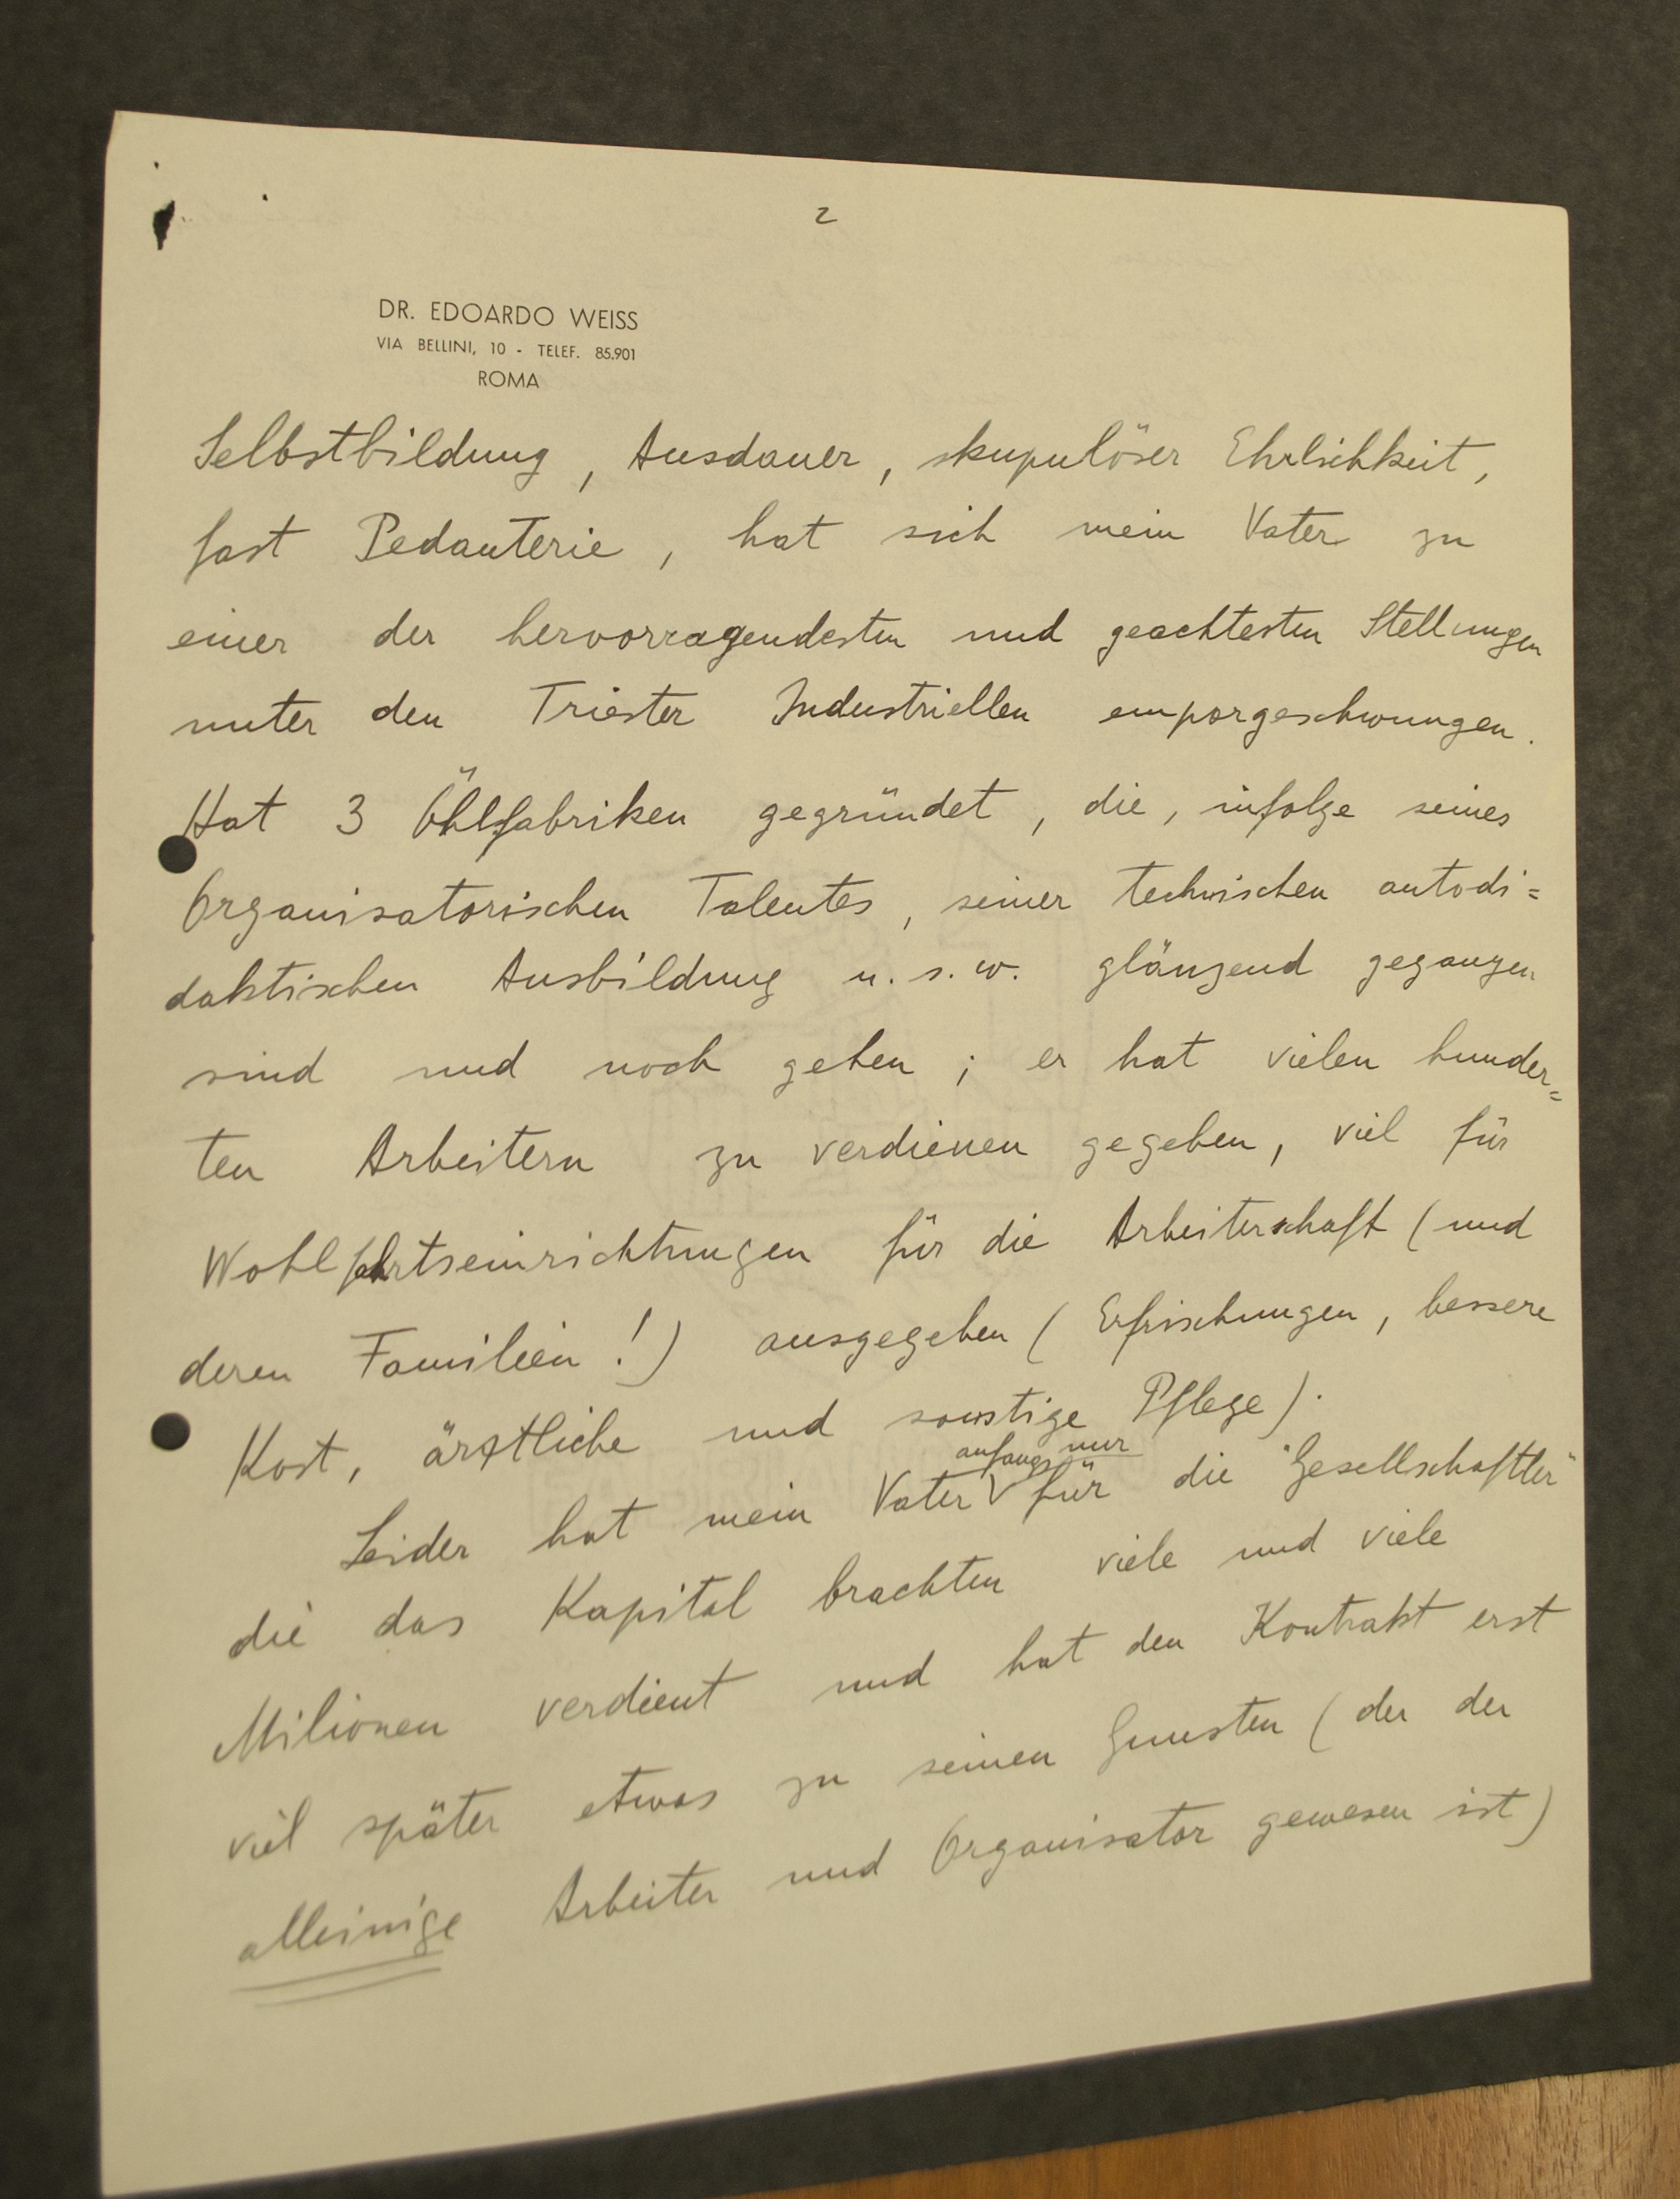 2
DR. EDOARDO WEISS
VIA BELLINI, 10 - TELEF. 85.901
ROMA
Selbstbildung, Ausdauer, skupulöser Ehrlichkeit,
fast Pedanterie, hat sich mein Vater zu
einer der hervorragendesten und geachtesten Stellungen
unter den Triester Industriellen emporgeschwungen.
Hat 3 Öhlfabriken gegründet, die, infolge seines
Organisatorischen Talentes, seiner technischen autodi=
daktischen Ausbildung u. s. w. glänzend gegangen
sind und noch gehen; er hat vielen hunder=
ten Arbeitern zu verdienen gegeben, viel für
Wohlfahrtseinrichtungen für die Arbeiterschaft (und
deren Familien!) ausgegeben (Erfrischungen, bessere
Kost, ärztliche und sonstige Pflege).
anfangs nur
Leider hat mein Vater für die "Gesellschaftler"
die das Kapital brachten viele und viele
Milionen verdient und hat den Kontrakt erst
viel später etwas zu seinen Gunsten (der der
alleinige Arbeiter und Organisator gewesen ist)